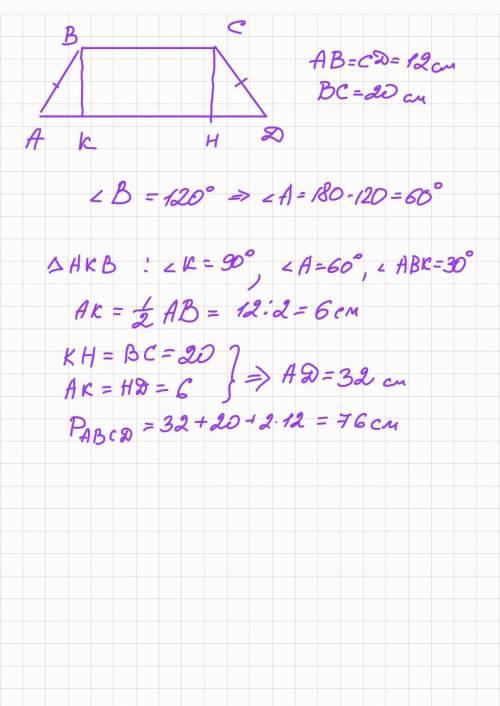 B C
A K H D
AB = CD = 12 см
BC = 20 см
∠ B = 120° ⇒ ∠ A = 180 - 120 = 60°
△ AKB : ∠ K = 90°, ∠ A = 60°, ∠ ABK = 30°
AK = 1/2 AB = 12 : 2 = 6 см
KH = BC = 20
AK = HD = 6 } ⇒ AD = 32 см
P_ABCD = 32 + 20 + 2 · 12 = 76 см